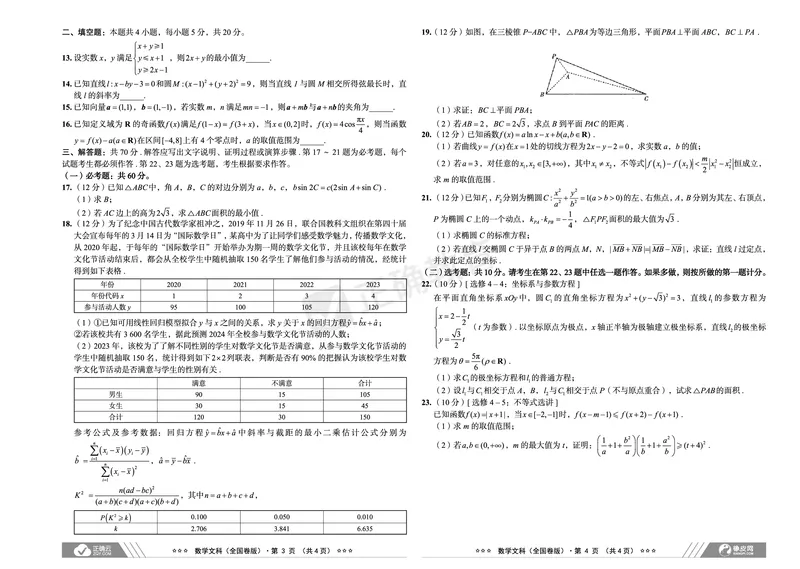 二、填空题：本题共4小题，每小题5分，共20分。
13.设实数x，y满足{x+y⩾1 y⩽x+1 y⩾2x−1，则2x+y的最小值为______.
14.已知直线l:x−by−3=0和圆M:(x−1)²+(y+2)²=9，则当直线 l 与圆 M 相交所得弦最长时，直
线 l 的斜率为______.
15.已知向量a=(1,1)，b=(1,−1)，若实数m，n满足mn=−1，则a+mb与a+nb的夹角为______.
16.已知定义域为 R 的奇函数f(x)满足f(1−x)=f(3+x)，当x∈(0,2]时，f(x)=4cos πx/4，则当函数
y=f(x)−a(a∈R)在区间[−4,8]上有4个零点时，a 的取值范围为______.
三、解答题：共70分.解答应写出文字说明、证明过程或演算步骤.第17～21题为必考题，每个
试题考生都必须作答.第22、23题为选考题，考生根据要求作答。
（一）必考题：共60分。
17.（12分）已知△ABC中，角A，B，C的对边分别为a，b，c，bsin2C=c(2sinA+sinC).
（1）求B；
（2）若AC边上的高为2 3，求△ABC面积的最小值.
18.（12分）为了纪念中国古代数学家祖冲之，2019年11月26日，联合国教科文组织在第四十届
大会宣布每年的3月14日为“国际数学日”，某高中为了让同学们感受数学魅力，传播数学文化，
从2020年起，于每年的“国际数学日”开始举办为期一周的数学文化节，并且该校每年在数学
文化节活动结束后，都会从全校学生中随机抽取150名学生了解他们参与活动的情况，经统计
得到如下表格.
年份 2020 2021 2022 2023
年份代码x 1 2 3 4
参与活动人数y 95 100 105 120
（1）①已知可用线性回归模型拟合y与x之间的关系，求y关于x的回归方程ŷ=b̂x+â；
②若该校共有3 600名学生，据此预测2024年全校参与数学文化节活动的人数；
（2）2023年，该校为了了解不同性别的学生对数学文化节是否满意，从参与数学文化节活动的
学生中随机抽取150名，统计得到如下2×2列联表，判断是否有90%的把握认为该校学生对数
学文化节活动是否满意与学生的性别有关.
满意 不满意 合计
男生 90 15 105
女生 30 15 45
合计 120 30 150
参考公式及参考数据：回归方程ŷ=b̂x+â中斜率与截距的最小二乘估计公式分别为
b̂=∑(i=1,n)(xᵢ−x̄)(yᵢ−ȳ)/∑(i=1,n)(xᵢ−x̄)²，â=ȳ−b̂x̄.
K²=n(ad−bc)²/(a+b)(c+d)(a+c)(b+d)，其中n=a+b+c+d，
P(K²⩾k) 0.100 0.050 0.010
k 2.706 3.841 6.635
正确云
☆☆☆ 数学文科（全国卷版）·第 3 页（共4页）☆☆☆
19.（12分）如图，在三棱锥P−ABC中，△PBA为等边三角形，平面PBA⊥平面ABC，BC⊥PA.
P
A
B
C
（1）求证：BC⊥平面PBA；
（2）若AB=2，BC=2 3，求点B到平面PAC的距离.
20.（12分）已知函数f(x)=alnx−x+b(a,b∈R).
（1）若曲线y=f(x)在x=1处的切线方程为2x−y−2=0，求实数a，b的值；
（2）若a=3，对任意的x₁,x₂∈[3,+∞)，其中x₁≠x₂，不等式|f(x₁)−f(x₂)|<m/2|x₁²−x₂²|恒成立，
求m的取值范围.
21.（12分）已知F₁，F₂分别为椭圆C:x²/a²+y²/b²=1(a>b>0)的左、右焦点，A，B分别为其左、右顶点，
P为椭圆C上的一个动点，k_PA·k_PB=−1/4，△F₁PF₂面积的最大值为 3.
（1）求椭圆C的标准方程；
（2）若直线l交椭圆C于异于点B的两点M，N，|MB+NB|=|MB−NB|，求证：直线l过定点，
并求此定点的坐标.
（二）选考题：共10分。请考生在第22、23题中任选一题作答。如果多做，则按所做的第一题计分。
22.（10分）[ 选修4−4：坐标系与参数方程 ]
在平面直角坐标系xOy中，圆C₁的直角坐标方程为x²+(y− 3)²=3，直线l₁的参数方程为
{x=2−1/2t y= 3/2t（t为参数）.以坐标原点为极点，x轴正半轴为极轴建立极坐标系，直线l₂的极坐标
方程为θ=5π/6(ρ∈R).
（1）求C₁的极坐标方程和l₁的普通方程；
（2）设l₁与C₁相交于点A，B，l₂与C₁相交于点P（不与原点重合），试求△PAB的面积.
23.（10分）[ 选修4−5：不等式选讲 ]
已知函数f(x)=|x+1|，当x∈[−2,−1]时，f(x−m−1)⩽f(x+2)−f(x+1).
（1）求m的取值范围；
（2）若a,b∈(0,+∞)，m的最大值为t，证明：(1/a+1+b²/a)(1/b+1+a²/b)⩾(t+4)².
☆☆☆ 数学文科（全国卷版）·第 4 页（共4页）☆☆☆
橡皮网